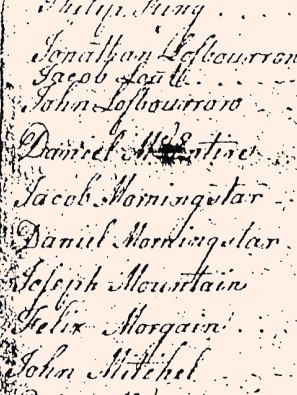 Philip King
Jonathan Lofbourrow
Jacob
John Lofbourrow
Daniel McEntire
Jacob Morningstar
Daniel Morningstar
Joseph Mountain
Felix Morgain
John Mitchel